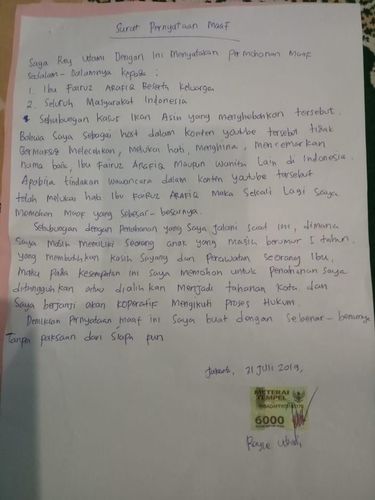 Surat Pernyataan Maaf
Saya Rey Utami Dengan Ini Menyatakan Permohonan Maaf
Sedalam-Dalamnya kepada :
1. Ibu Fairuz ARAFIQ Beserta Keluarga
2. Seluruh Masyarakat Indonesia
Sehubungan Kasus Ikan Asin yang menghebohkan tersebut.
Bahwa saya sebagai host dalam konten youtube tersebut tidak
Bermaksud Melecehkan, Melukai hati, Menghina, Mencemarkan
nama baik, Ibu Fairuz ARAFIQ Maupun Wanita Lain di Indonesia.
Apabila tindakan wawancara dalam konten youtube tersebut
telah Melukai hati Ibu FAIRUZ ARAFIQ Maka Sekali Lagi Saya
Memohon Maaf yang Sebesar-besarnya.
Sehubungan dengan Penahanan yang Saya Jalani Saat Ini, dimana
Saya Masih Memiliki Seorang anak yang Masih berumur 1 tahun.
yang membutuhkan kasih Sayang dan Perawatan Seorang Ibu,
Maka Pada Kesempatan ini Saya Memohon untuk Penahanan Saya
ditangguhkan atau dialihkan Menjadi tahanan Kota dan
Saya berjanji akan koperatif Mengikuti Proses Hukum.
Demikian Pernyataan Maaf ini Saya buat dengan Sebenar-benarnya
Tanpa paksaan dari Siapa pun
Jakarta, 21 Juli 2019,
METERAI
TEMPEL
6000